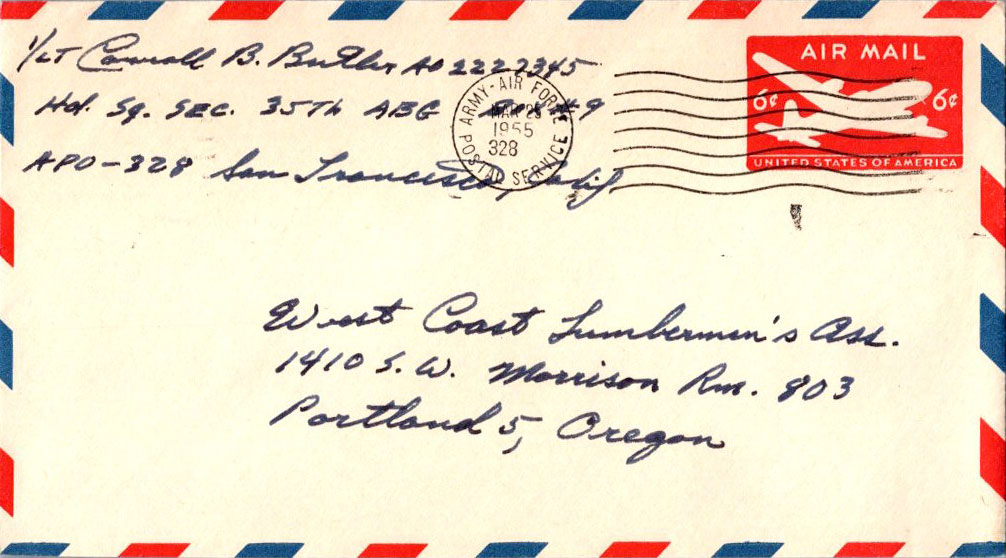 1/LT Carroll B. Butler AO 2227345
Hd. Sq. SEC. 35Th ABG
APO-328 San Francisco, Calif
ARMY-AIR FORCE POSTAL SERVICE
MAR 25
1955
328
AIR MAIL
6¢ 6¢
UNITED STATES OF AMERICA
West Coast Lumbermen's Ass.
1410 S.W. Morrison Rm. 803
Portland 5, Oregon